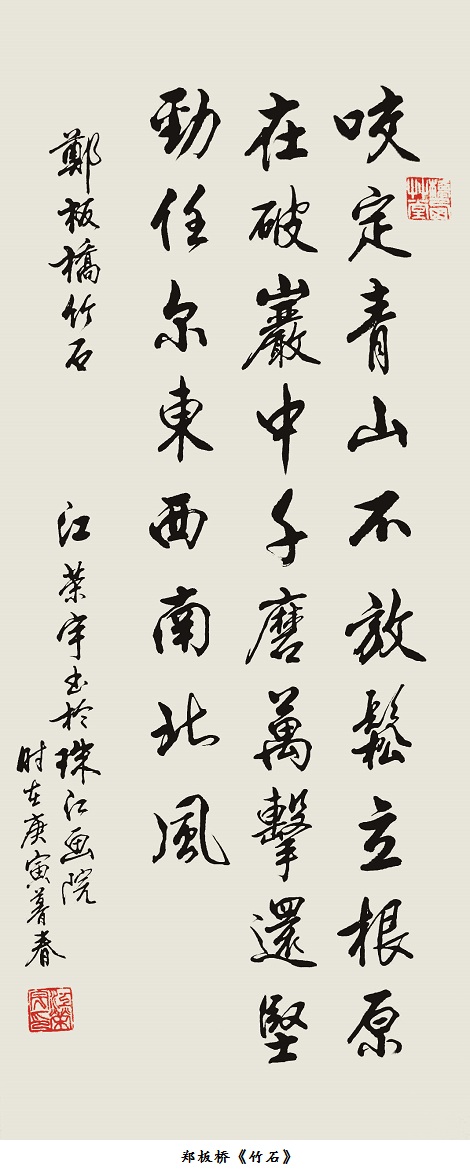 咬定青山不放鬆立根原
在破巖中千磨萬擊還堅
勁任尔東西南北風
鄭板橋竹石
江荣宇书於珠江画院
时在庚寅暮春
郑板桥《竹石》